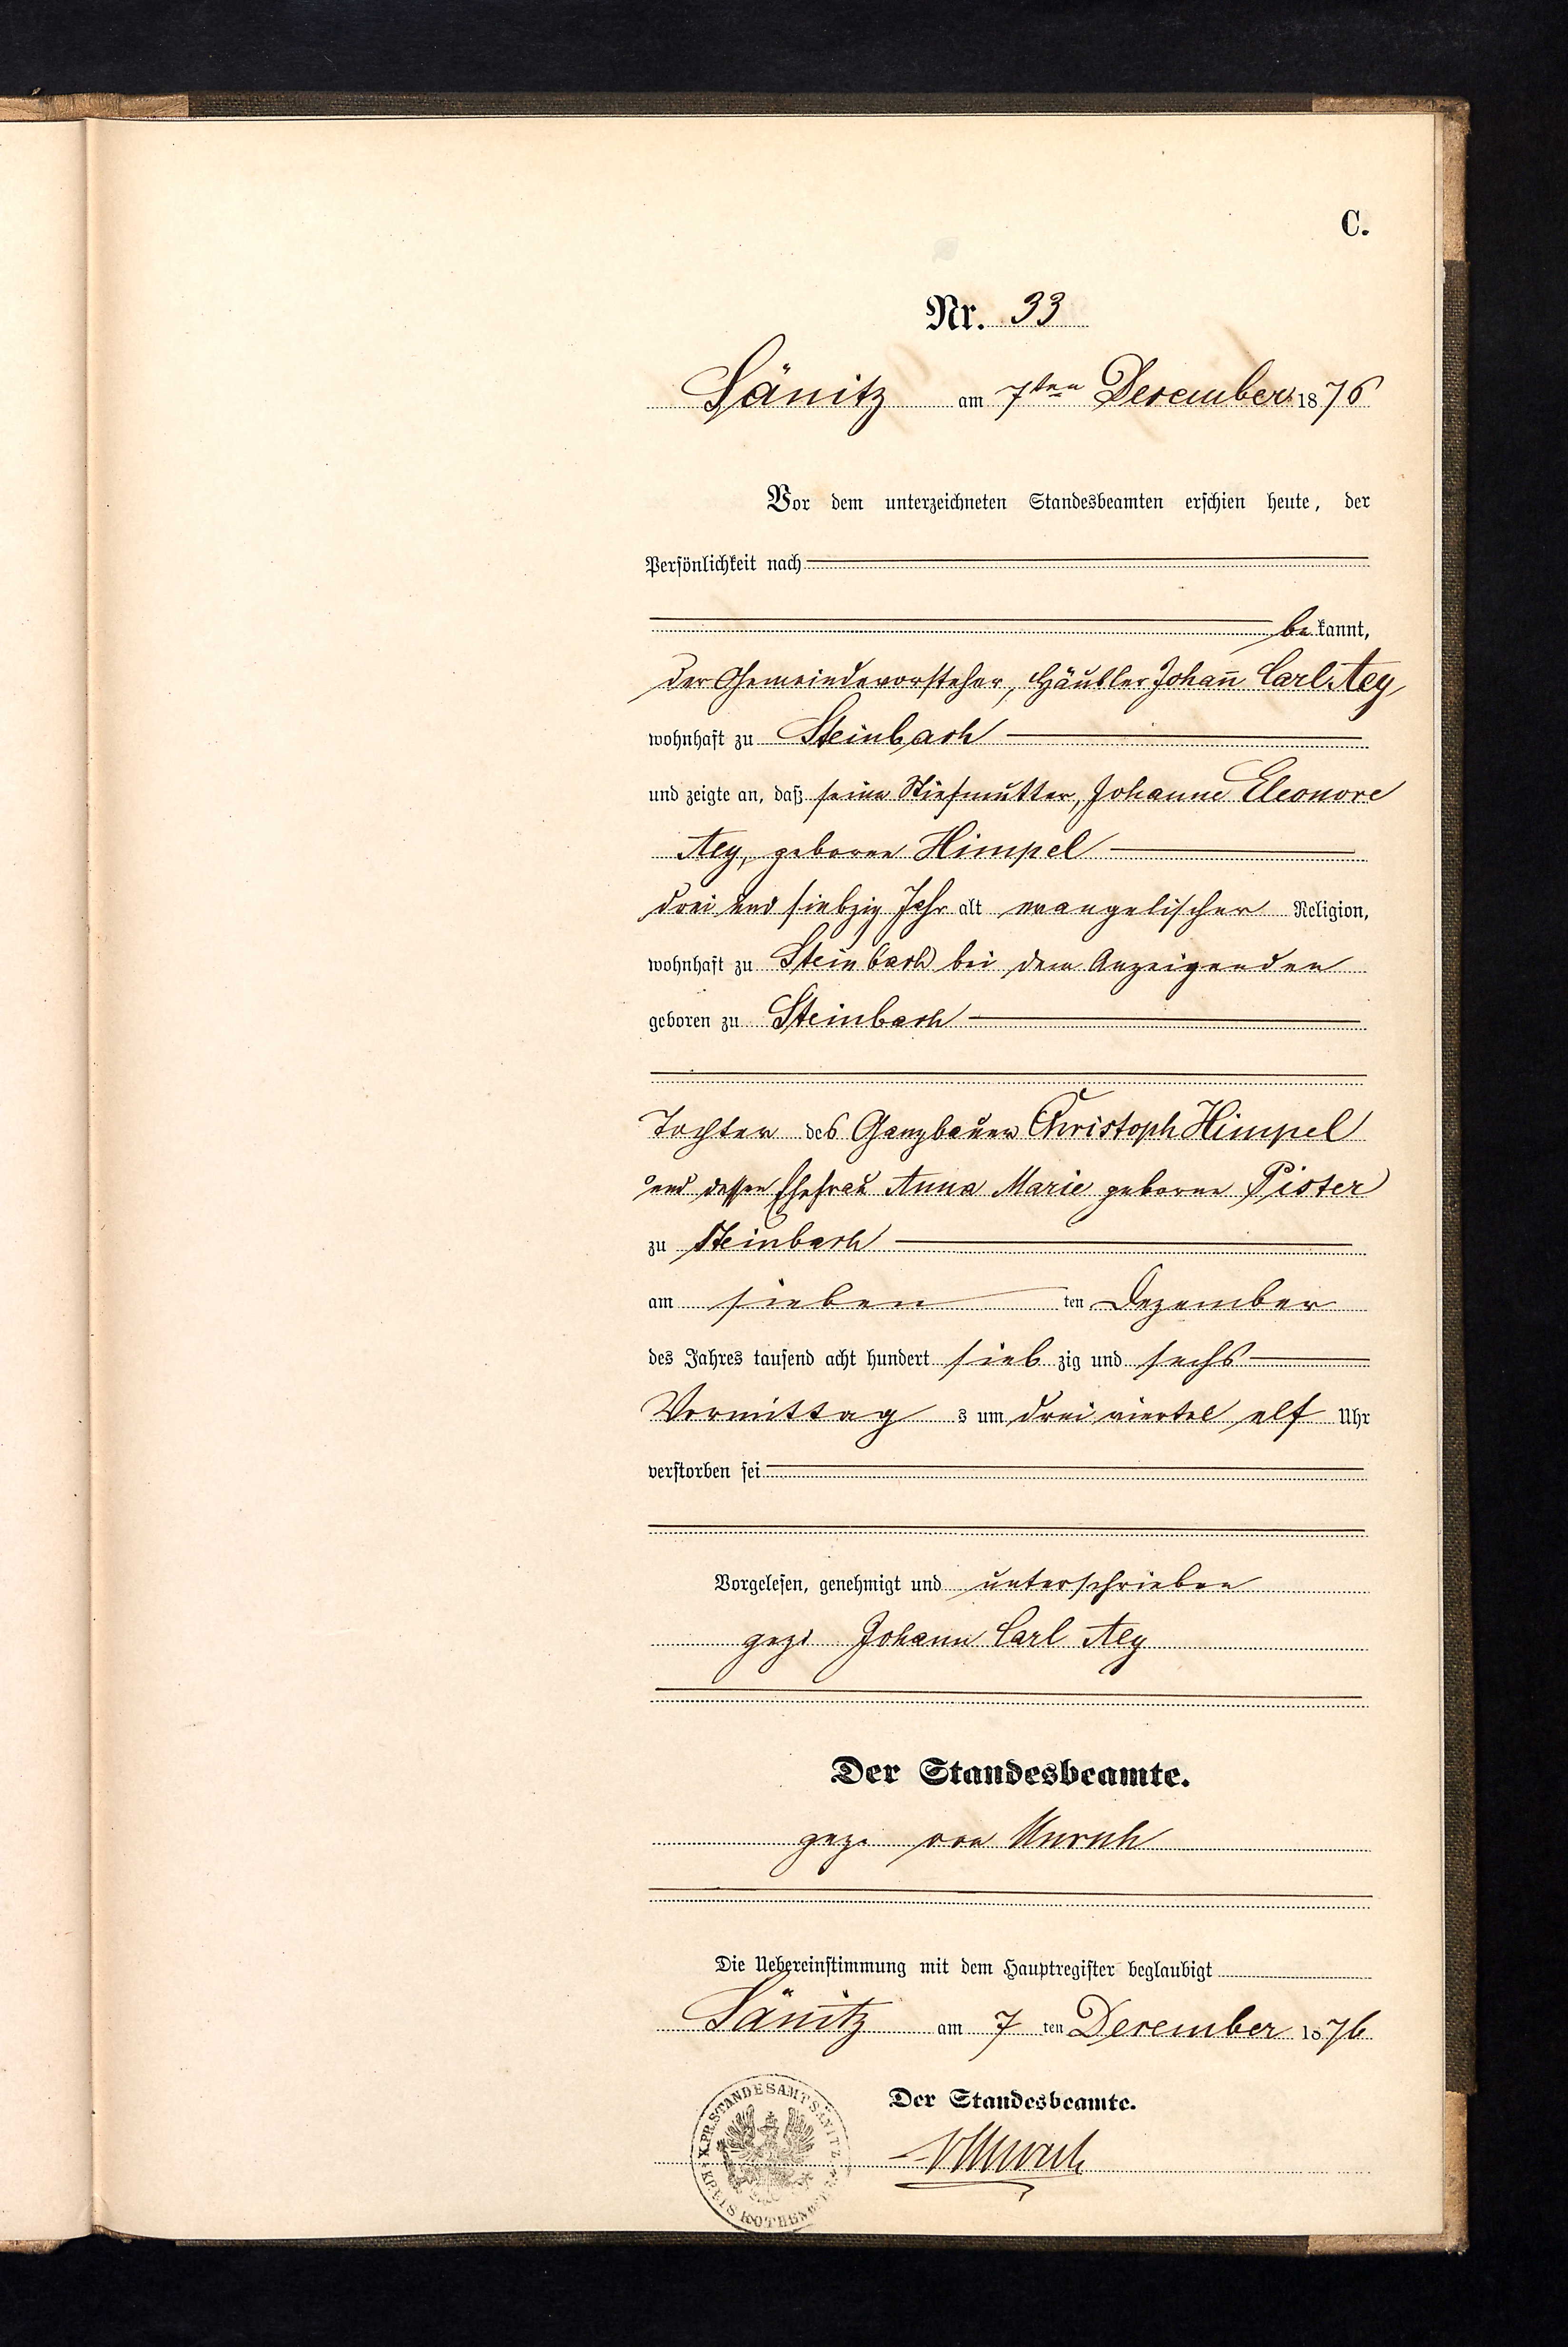 C.
Nr. 33
Sänitz am 7ten December 1876
Vor dem unterzeichneten Standesbeamten erschien heute, der
Persönlichkeit nach
bekannt,
der Gemeindevorsteher, Häusler Johan̄ Carl Aey
wohnhaft zu Steinbach
und zeigte an, daß seine Stiefmutter, Johanne Eleonore
Aey, geborne Himpel
drei und siebzig Jahr alt evangelischer Religion,
wohnhaft zu Steinbach bei dem Anzeigenden
geboren zu Steinbach
Tochter des Ganzbauer Christoph Himpel
und dessen Ehefrau Anna Marie geborne Pister
zu Steinbach
am sieben ten Dezember
des Jahres tausend acht hundert sieb zig und sechs
Vormittag s um drei viertel elf Uhr
verstorben sei
Vorgelesen, genehmigt und unterschrieben
gez. Johann Carl Aey
Der Standesbeamte.
gez. von
Die Uebereinstimmung mit dem Hauptregister beglaubigt
Sänitz am 7 ten December 1876
Der Standesbeamte.
K. PR. STANDESAMT SÄNITZ
KREIS